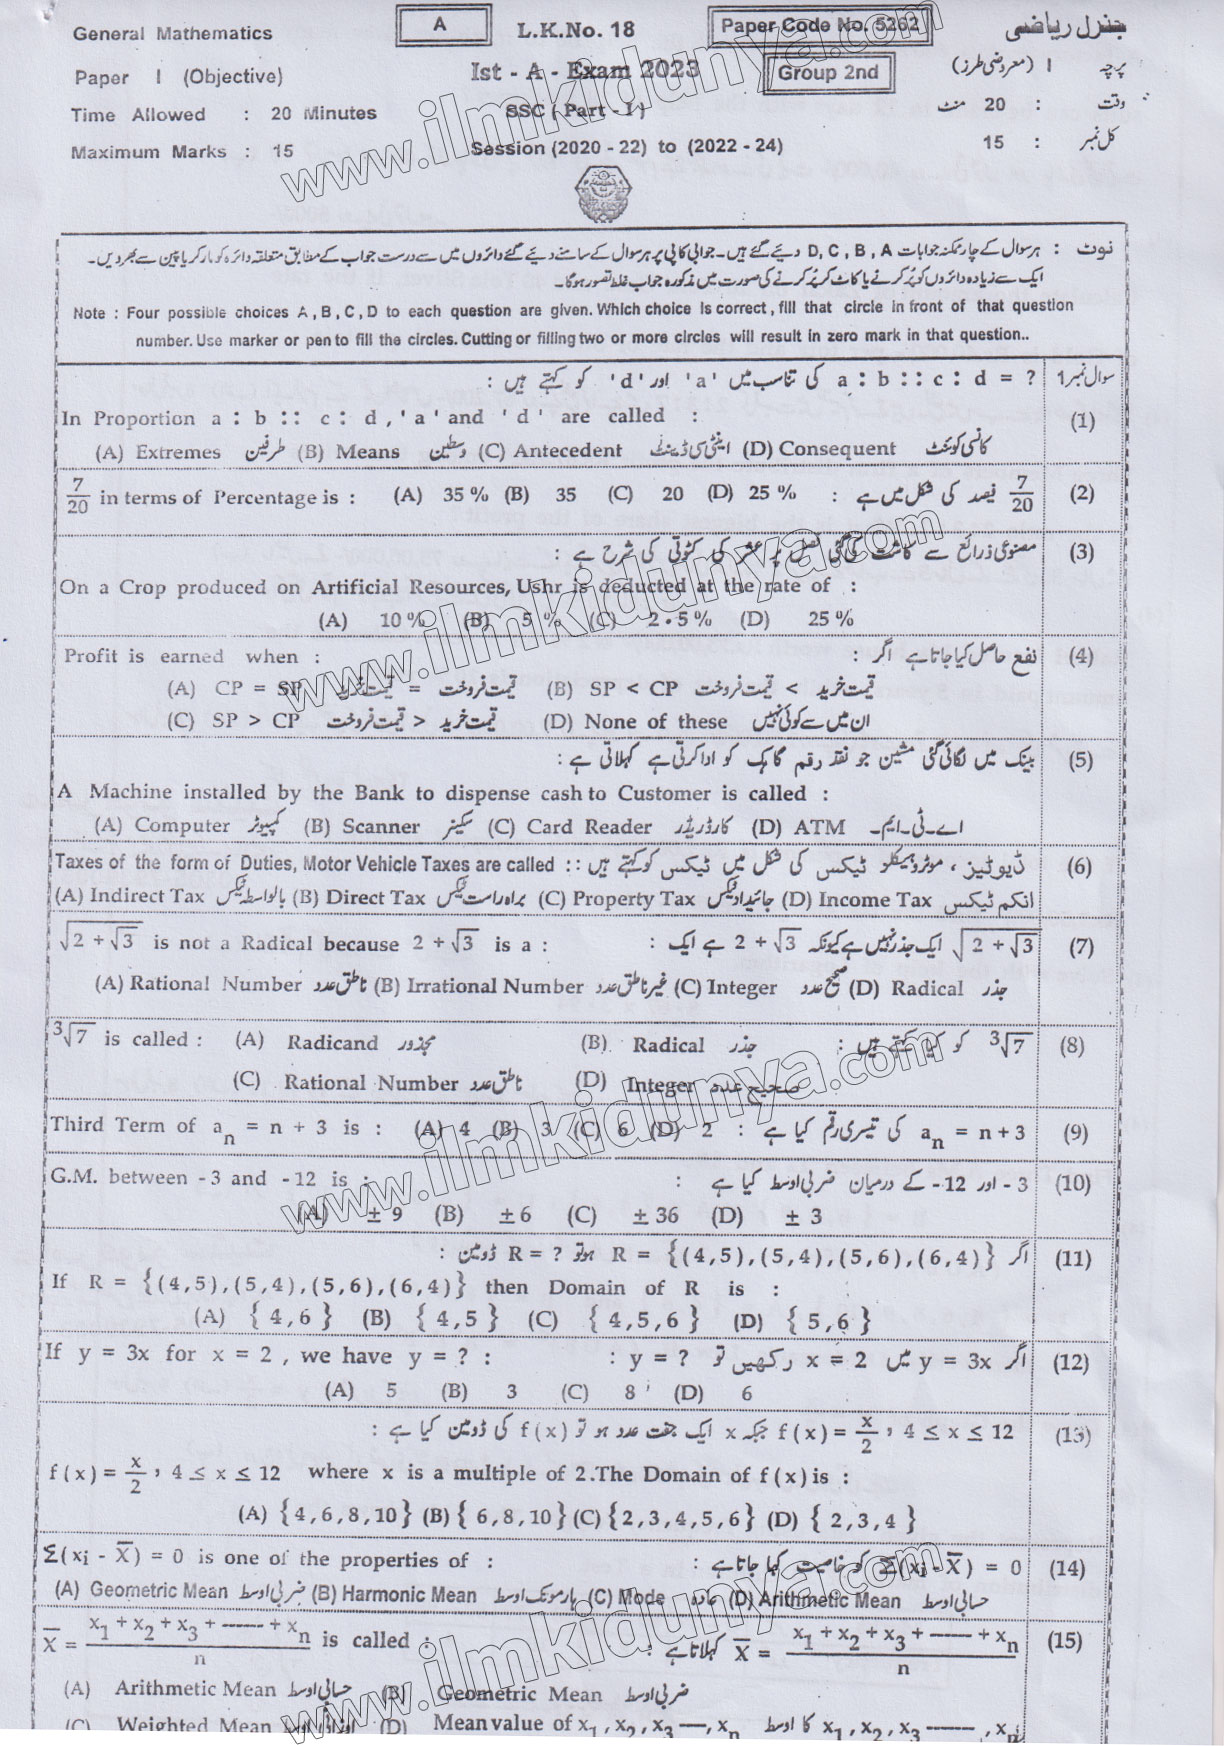 General Mathematics
A
L.K.No. 18
Paper Code No. 5262
جنرل ریاضی
Paper I (Objective)
Ist - A - Exam 2023
Group 2nd
پرچہ I (معروضی طرز)
Time Allowed : 20 Minutes
SSC ( Part - I )
وقت : 20 منٹ
Maximum Marks : 15
Session (2020 - 22) to (2022 - 24)
کل نمبر : 15
نوٹ : ہر سوال کے چار ممکنہ جوابات D, C, B, A دیئے گئے ہیں۔ جوابی کاپی پر ہر سوال کے سامنے دیئے گئے دائروں میں سے درست جواب کے مطابق متعلقہ دائرہ کو مارکر یا پین سے بھر دیں۔
ایک سے زیادہ دائروں کو پُر کرنے یا کاٹ کر پُر کرنے کی صورت میں مذکورہ جواب غلط تصور ہوگا۔
Note : Four possible choices A, B, C, D to each question are given. Which choice is correct, fill that circle in front of that question
number. Use marker or pen to fill the circles. Cutting or filling two or more circles will result in zero mark in that question..
سوال نمبر 1
a : b : : c : d = ? کی تناسب میں 'a' اور 'd' کو کہتے ہیں :
(1)
In Proportion a : b : : c : d , 'a' and 'd' are called :
(A) Extremes طرفین (B) Means وسطین (C) Antecedent اینٹی سی ڈینٹ (D) Consequent کانسی کوئنٹ
7/20 in terms of Percentage is : (A) 35 % (B) 35 (C) 20 (D) 25 % 7/20 فیصد کی شکل میں ہے : (2)
مصنوعی ذرائع سے کاشت کی گئی فصل پر عشر کی کٹوتی کی شرح ہے : (3)
On a Crop produced on Artificial Resources, Ushr is deducted at the rate of :
(A) 10 % (B) 5 % (C) 2.5 % (D) 25 %
Profit is earned when : نفع حاصل کیا جاتا ہے اگر : (4)
(A) CP = SP قیمت فروخت = قیمت خرید (B) SP < CP قیمت خرید > قیمت فروخت
(C) SP > CP قیمت خرید < قیمت فروخت (D) None of these ان میں سے کوئی نہیں
بینک میں لگائی گئی مشین جو نقد رقم گاہک کو ادا کرتی ہے کہلاتی ہے : (5)
A Machine installed by the Bank to dispense cash to Customer is called :
(A) Computer کمپیوٹر (B) Scanner سکینر (C) Card Reader کارڈ ریڈر (D) ATM اے۔ٹی۔ایم۔
Taxes of the form of Duties, Motor Vehicle Taxes are called : ڈیوٹیز ، موٹر وہیکلز ٹیکس کی شکل میں ٹیکس کو کہتے ہیں : (6)
(A) Indirect Tax بالواسطہ ٹیکس (B) Direct Tax براہ راست ٹیکس (C) Property Tax جائیداد ٹیکس (D) Income Tax انکم ٹیکس
√(2 + √3) is not a Radical because 2 + √3 is a : √(2 + √3) ایک جذر نہیں ہے کیونکہ 2 + √3 ہے ایک : (7)
(A) Rational Number ناطق عدد (B) Irrational Number غیر ناطق عدد (C) Integer صحیح عدد (D) Radical جذر
³√7 is called : (A) Radicand مجذور (B) Radical جذر ³√7 کو کیا کہتے ہیں : (8)
(C) Rational Number ناطق عدد (D) Integer صحیح عدد
Third Term of aₙ = n + 3 is : (A) 4 (B) 3 (C) 6 (D) 2 aₙ = n + 3 کی تیسری رقم کیا ہے : (9)
G.M. between -3 and -12 is : -3 اور -12 کے درمیان ضربی اوسط کیا ہے : (10)
(A) ± 9 (B) ± 6 (C) ± 36 (D) ± 3
اگر R = {(4,5),(5,4),(5,6),(6,4)} ہو تو R = ? ڈومین : (11)
If R = {(4,5),(5,4),(5,6),(6,4)} then Domain of R is :
(A) {4,6} (B) {4,5} (C) {4,5,6} (D) {5,6}
If y = 3x for x = 2 , we have y = ? : اگر y = 3x میں x = 2 رکھیں تو y = ? : (12)
(A) 5 (B) 3 (C) 8 (D) 6
f(x) = x/2 , 4 ≤ x ≤ 12 جبکہ x ایک جفت عدد ہو تو f(x) کی ڈومین کیا ہے : (13)
f(x) = x/2 , 4 ≤ x ≤ 12 where x is a multiple of 2. The Domain of f(x) is :
(A) {4,6,8,10} (B) {6,8,10} (C) {2,3,4,5,6} (D) {2,3,4}
Σ(xi - X̅) = 0 is one of the properties of : Σ(xi - X̅) = 0 کو خاصیت کہا جاتا ہے : (14)
(A) Geometric Mean ضربی اوسط (B) Harmonic Mean ہارمونک اوسط (C) Mode عادہ (D) Arithmetic Mean حسابی اوسط
X̅ = (x₁ + x₂ + x₃ + ------ + xₙ)/n is called : X̅ = (x₁ + x₂ + x₃ + ------ + xₙ)/n کہلاتا ہے : (15)
(A) Arithmetic Mean حسابی اوسط (B) Geometric Mean ضربی اوسط
(C) Weighted Mean (D) Mean value of x₁, x₂, x₃ ---, xₙ کا اوسط x₁, x₂, x₃ ------, xₙ
www.ilmkidunya.com
www.ilmkidunya.com
www.ilmkidunya.com
www.ilmkidunya.com